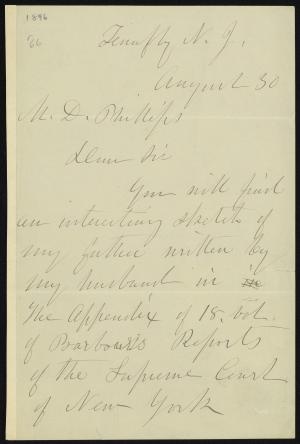 1896
'86
Tenafly N. J.
August 30
M. D. Phillips
Dear Sir
You will find
an interesting sketch of
my father written by
my husband in in
the Appendix of 18. Vol.
of Barbour's Reports
of the Supreme Court
of New York